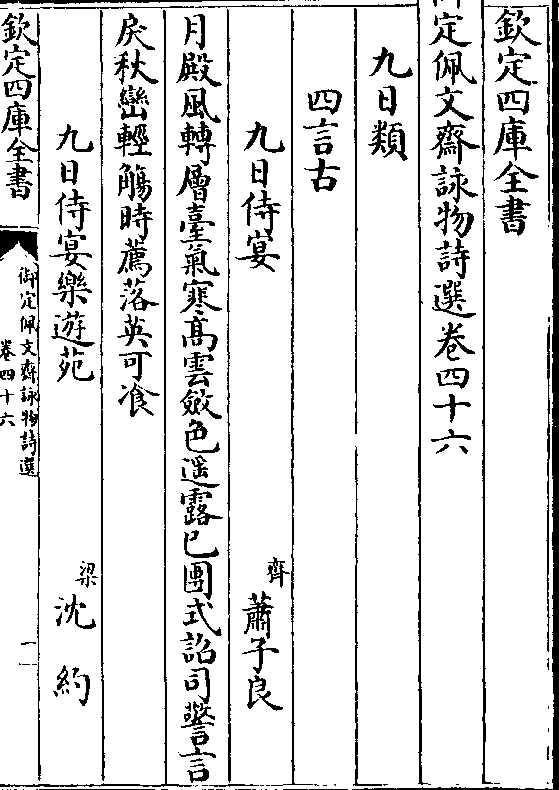 欽定四庫全書
御定佩文齋詠物詩選卷四十六
九日類
四言古
九日侍宴 齊 蕭子良
月殿風轉層臺氣寒髙雲斂色遥露已團式詔司警言
戾秋巒輕觴時薦落英可飡
九日侍宴樂遊苑 梁 沈約
欽定四庫全書
御定佩文齋詠物詩選
卷四十六
一